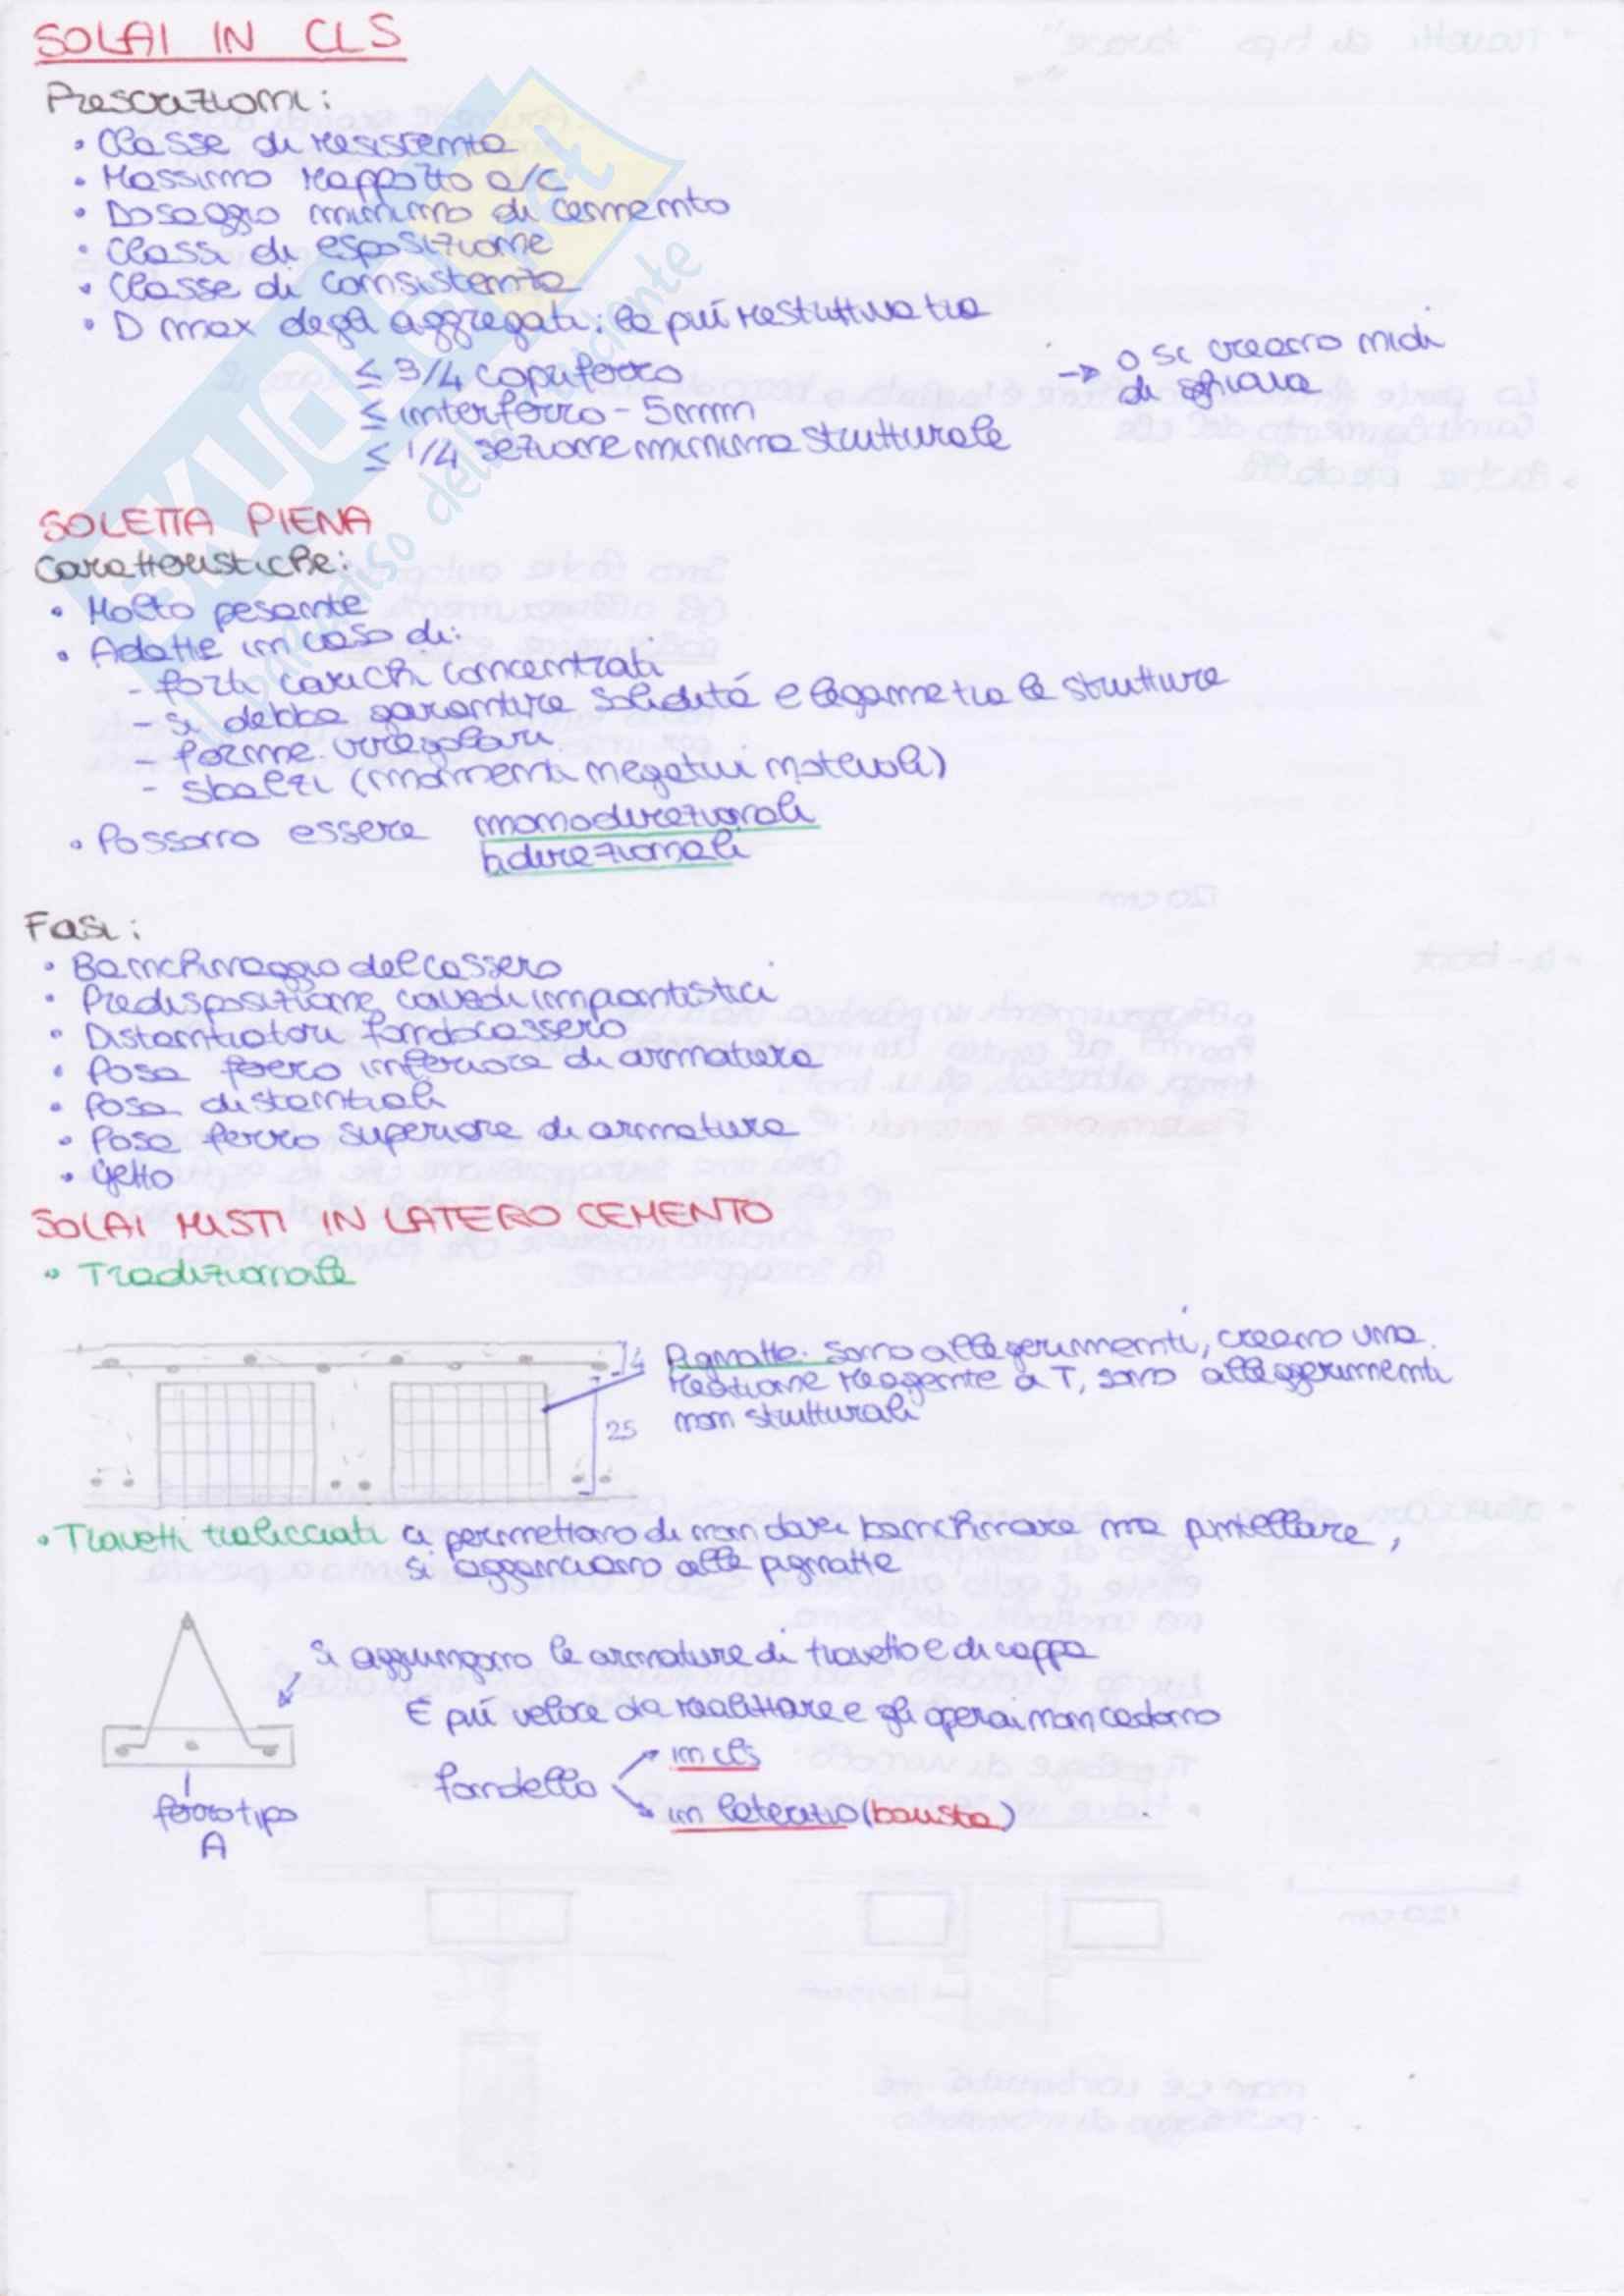 SOLAI IN CLS
Prestazioni:
• Classe di resistenza
• Massimo rapporto a/c
• Dosaggio minimo di cemento
• Classi di esposizione
• Classe di consistenza
• D max degli aggregati: la più restrittiva tra
≤ 3/4 copriferro
≤ interferro - 5mm
≤ 1/4 sezione minima strutturale
→ o si creano nidi
di ghiaia
SOLETTA PIENA
Caratteristiche:
• Molto pesante
• Adatte in caso di:
- forti carichi concentrati
- si debba garantire solidità e legame tra le strutture
- forme irregolari
- sbalzi (momenti negativi notevoli)
• Possono essere monodirezionali
bidirezionali
Fasi:
• Banchinaggio del cassero
• Predisposizione cavedi impiantistici
• Distanziatori fondocassero
• Posa ferro inferiore di armatura
• Posa distanziali
• Posa ferro superiore di armatura
• Getto
SOLAI MISTI IN LATERO CEMENTO
• Tradizionale
4
25
Pignatte: sono alleggerimenti, creano una
sezione reagente a T, sono alleggerimenti
non strutturali
• Travetti tralicciati ci permettono di non dover banchinare ma puntellare,
si agganciano alle pignatte
Si aggiungono le armature di travetto e di cappa
È più veloce da realizzare e gli operai non cadono
ferro tipo
A
fondello → in cls
→ in laterizio (bausta)